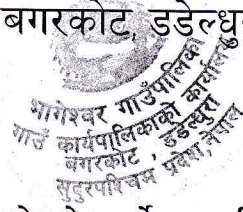 बगरकोट, डडेल्धु
भागेश्वर गाउँपालिका
गाउँ कार्यपालिकाको कार्यालय
बगरकोट , डडेल्धुरा
सुदुरपश्चिम प्रदेश, नेपाल